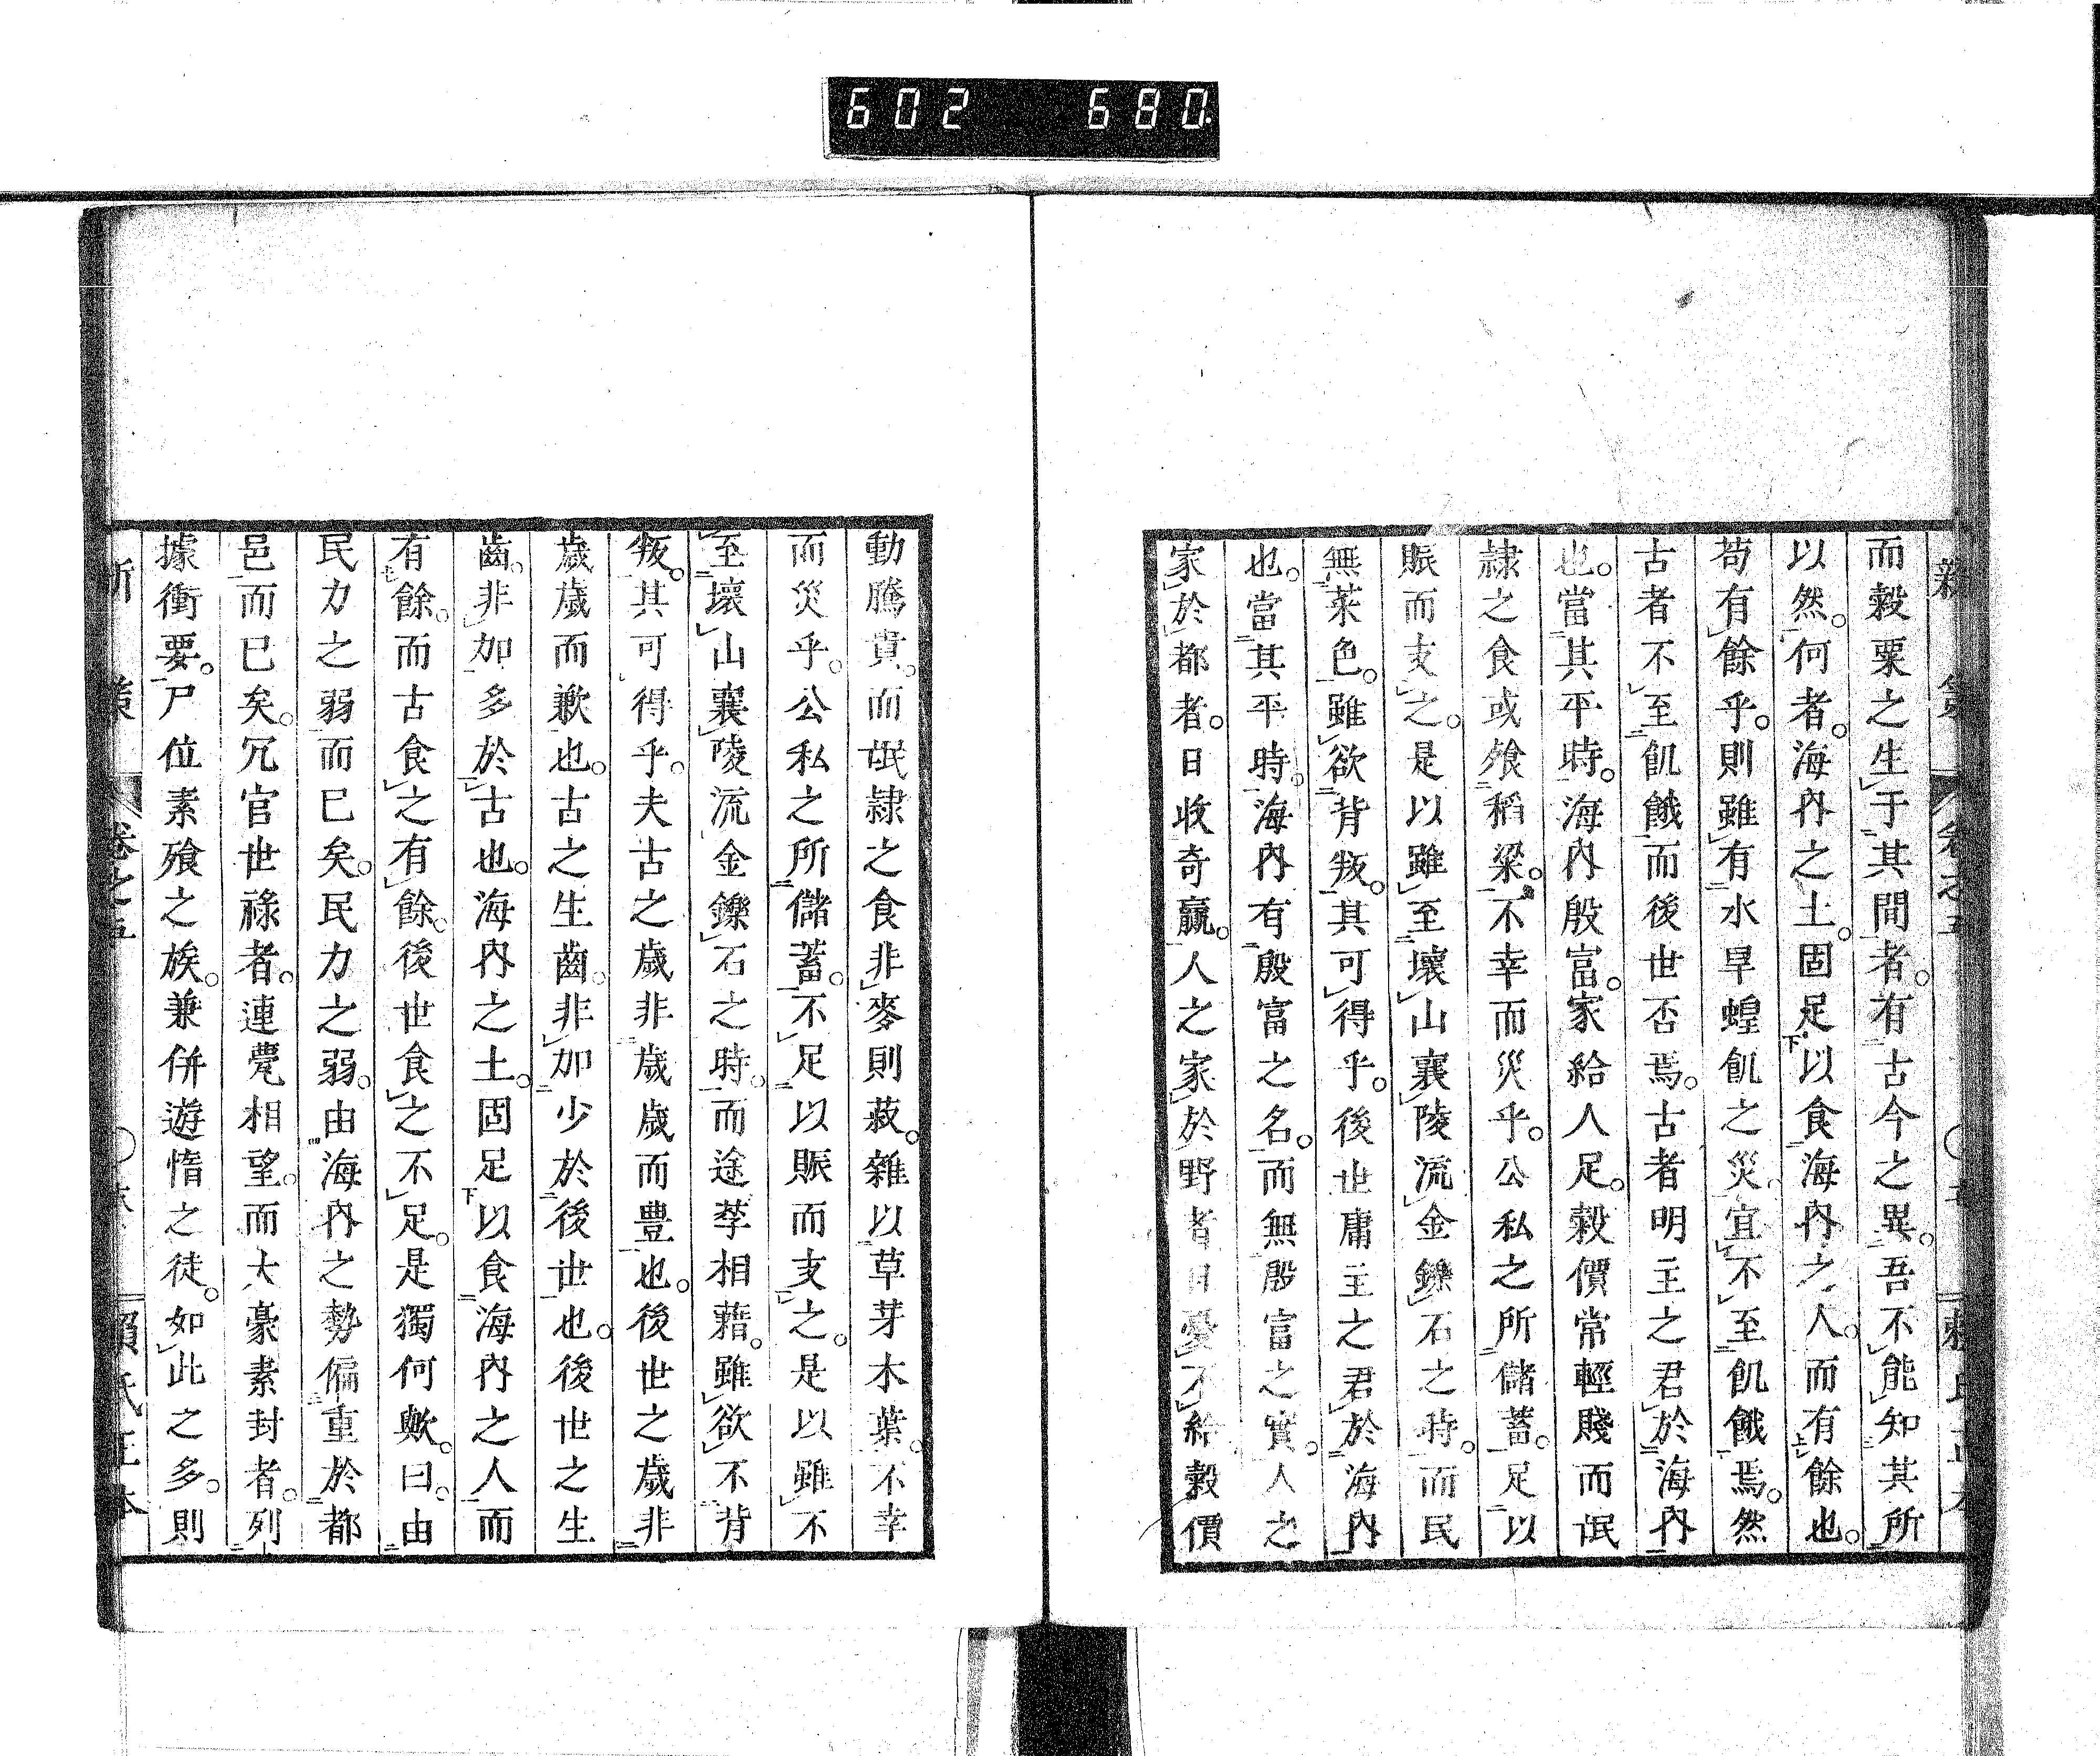 602 680
新策 卷之五 賴氏正本
而穀粟之生于其間者。有古今之異。吾不能知其所
以然。何者。海內之土。固足以食海內之人。而有餘也。
苟有餘乎。則雖有水旱蝗飢之災。宜不至飢餓焉。然
古者不至飢餓而後世否焉。古者明主之君於海內
也。當其平時。海內殷富。家給人足。穀價常輕賤而氓
隷之食或飧稻梁。不幸而災乎。公私之所儲蓄。足以
賑而支之。是以雖至壞山襄陵流金鑠石之時。而民
無菜色。雖欲背叛。其可得乎。後世庸主之君於海內
也。當其平時。海內有殷富之名。而無殷富之實。人之
家於都者。日收奇贏。人之家於野者日憂不給穀價
動騰貴。而氓隷之食非麥則菽。雜以草芽木葉。不幸
而災乎。公私之所儲蓄。不足以賑而支之。是以雖不
至壞山襄陵流金鑠石之時。而途莩相藉。雖欲不背
叛。其可得乎。夫古之歲非歲歲而豊也。後世之歲非
歲歲而歉也。古之生齒。非加少於後世也。後世之生
齒。非加多於古也。海內之土。固足以食海內之人而
有餘。而古食之有餘。後世食之不足。是獨何歟。曰。由
民力之弱而已矣。民力之弱。由海內之勢偏重於都
邑而已矣。冗官世祿者。連甍相望。而大豪素封者。列
據衝要。尸位素飧之族。兼併遊惰之徒。如此之多。則
新策 卷之五 賴氏正本